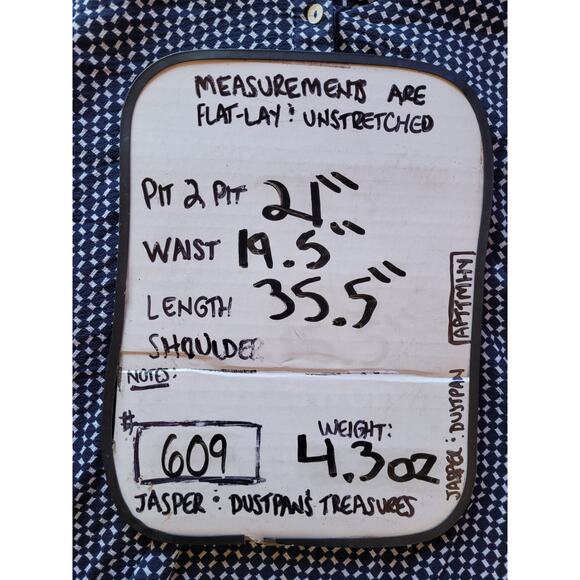 MEASUREMENTS ARE
FLAT-LAY : UNSTRETCHED
PIT 2 PIT 21"
WAIST 19.5"
LENGTH 35.5"
SHOULDER
NOTES:
# 609
WEIGHT:
4.3oz
JASPER : DUSTPAN'S TREASURES
JASPER : DUSTPAN APTTMHY